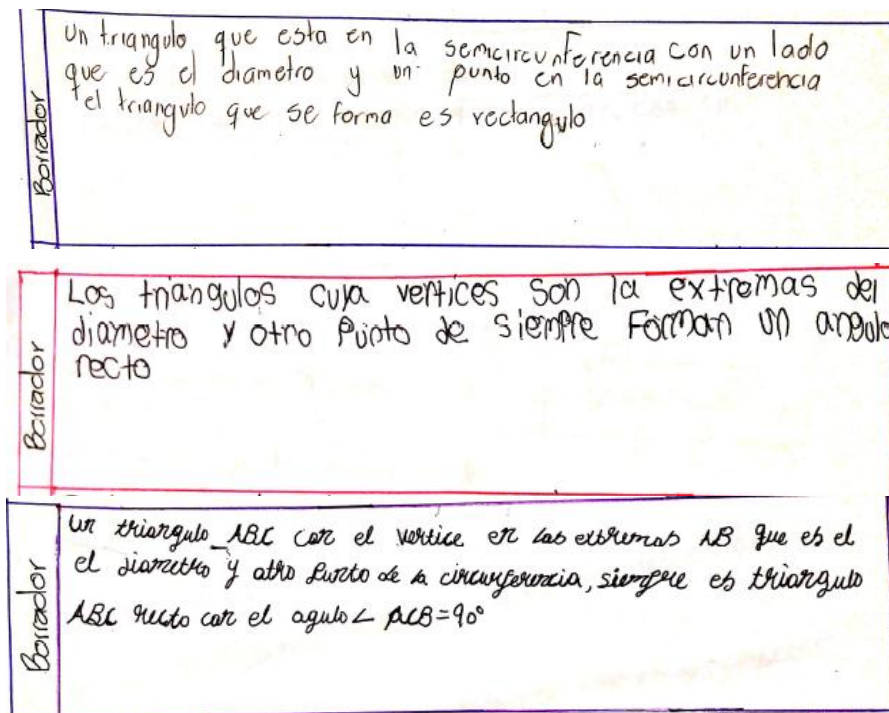 Borrador
Un triangulo que esta en la semicircunferencia con un lado
que es el diametro y un punto en la semicircunferencia
el triangulo que se forma es rectangulo
Borrador
Los triangulos cuya vertices son la extremas del
diametro y otro punto de siempre Forman un angulo
recto
Borrador
un triangulo ABC con el vertice en las extremas AB que es el
el diametro y otro punto de la circunferencia, siempre es triangulo
ABC recto con el agulo ∠ ACB=90°